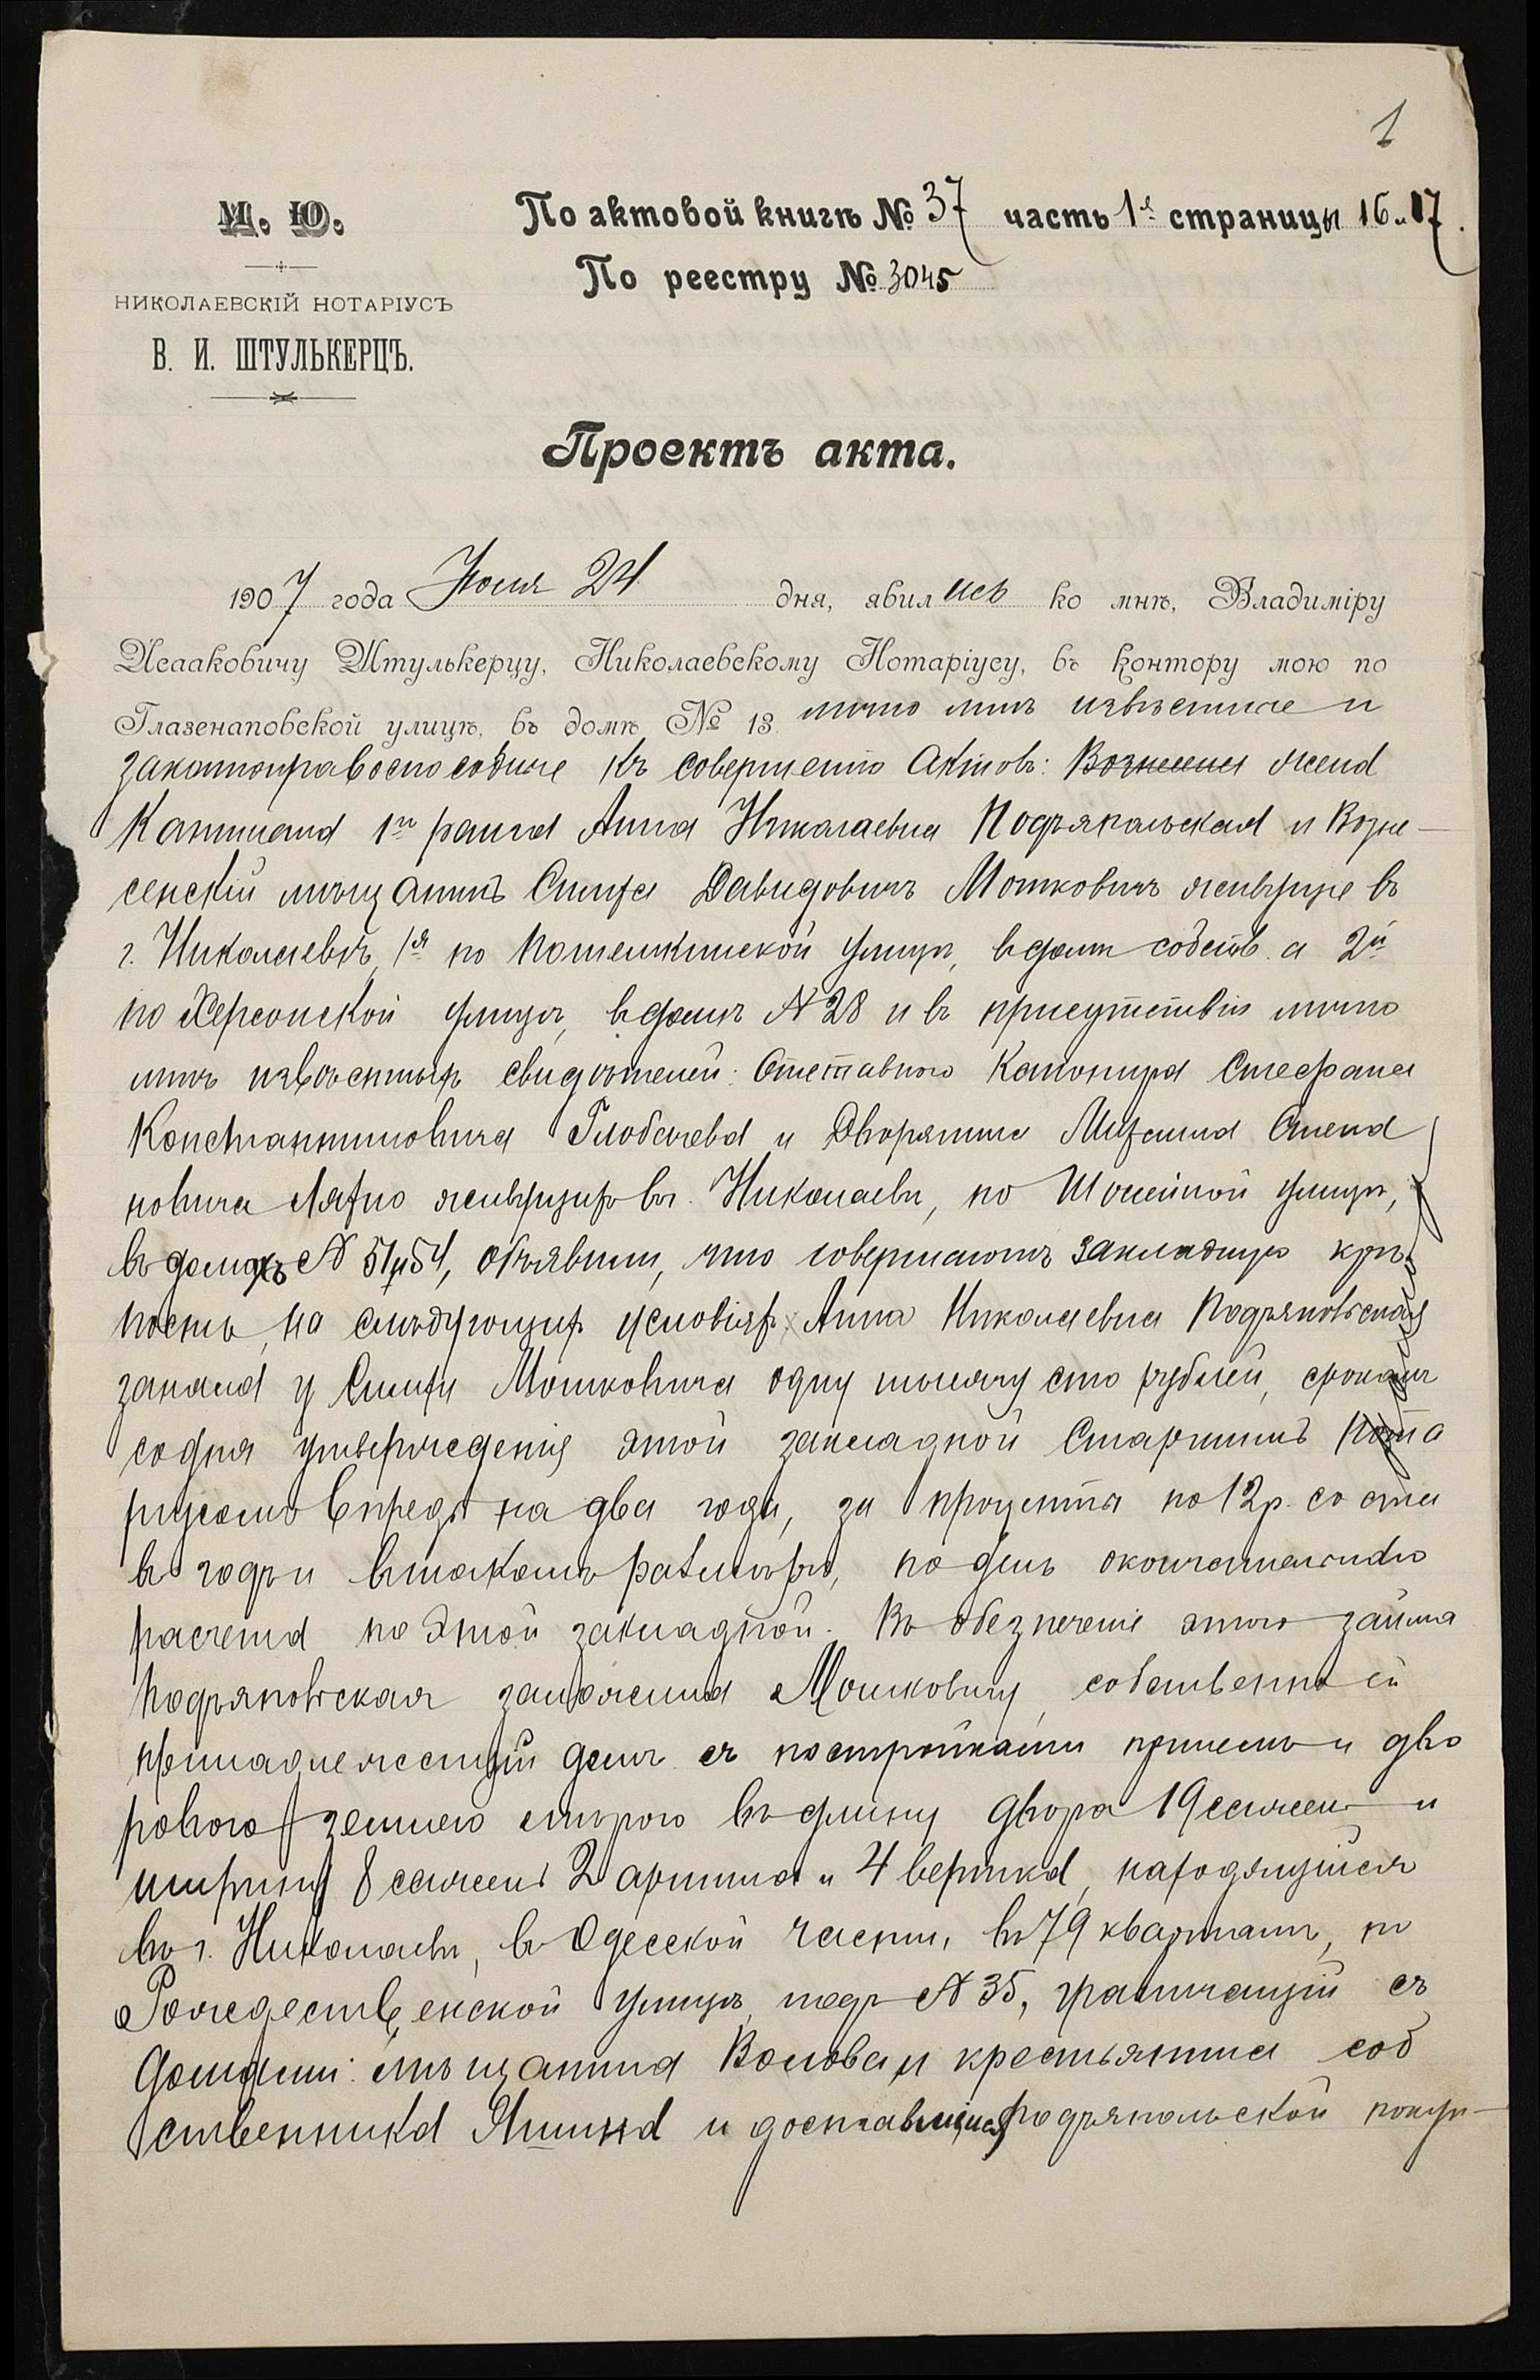 1
М. Ю.
По актовой книгѣ № 37 часть 1я страницы 16 и 17.
По реестру № 3045
НИКОЛАЕВСКІЙ НОТАРІУСЪ
В. И. ШТУЛЬКЕРЦЪ.
Проектъ акта.
1907 года Іюля 24 дня, явились ко мнѣ, Владиміру
Исааковичу Штулькерцу, Николаевскому Нотаріусу, въ контору мою по
Глазенаповской улицѣ, въ домѣ № 13 лично мнѣ извѣстные и
законоправоспособные къ совершенію актовъ: жена
Капитана 1го ранга Анна Николаевна Подъяпольская и Возне-
сенскій мѣщанинъ Симха Давидовичъ Мошковичъ живущіе въ
г. Николаевѣ, 1я по Потемкинской улицѣ, в домѣ собств. а 2й
по Херсонской улицѣ, в домѣ № 28 и въ присутствіи лично
мнѣ извѣстныхъ свидѣтелей: Отставного Канонира Стефана
Константиновича Глобачева и Дворянина
живущихъ въ г. Николаевѣ, по улицѣ,
въ домахъ № 51 и 54, объявили, что совершаютъ закладную крѣ-
пость, на слѣдующихъ условіяхъ: Анна Николаевна Подъяпольская
заняла у Симхи Мошковича одну тысячу сто рублей, срокомъ
со дня утвержденія этой закладной Старшимъ Нота
ріусомъ впредь на два года, за проценты по 12 р. со ста
въ годъ и въ такомъ размѣрѣ, по день окончательнаго
расчета по этой закладной. Въ обезпеченіе этого займа
Подъяпольская заложила Мошковичу, собственно ей
принадлежащій домъ съ постройками при немъ и дво
ровою землею мѣрою въ длину двора 19 сажень и
ширину 8 сажень 2 аршина и 4 вершка, находящійся
въ г. Николаевѣ, въ Одесской части, въ 79 кварталѣ, по
Рождественской улицѣ подъ № 35, граничащій съ
домами: мѣщанина Волова и крестьянина соб
ственника и доставшійся Подъяпольской покуп-